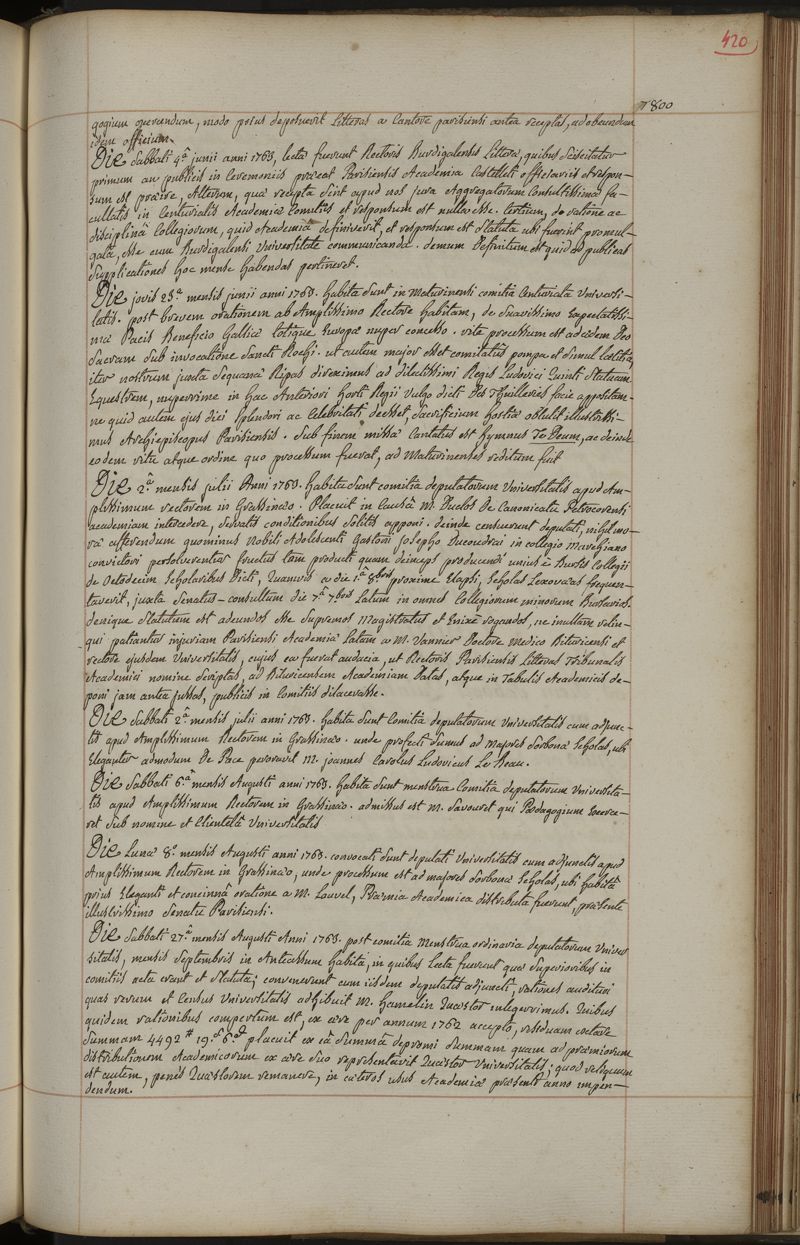 420
7800
gogium operendum, modo prius deposuerit Litteras a Cantore parisiensi antea receptas, ad obeundum
idem officium.
Die Sabbati 4ª junii anni 1763, lecta fuerunt Rectoris Burdigalensis Littera, quibus Sciscitatur
primum an publicis in Ceremoniis praeeat Parisiensis Academia Castelleti officiariis et respon-
sum est praeire, Alterum, qua recepta sint apud nos jura Aggregatorum Consultissima fa-
cultatis in Centurialis Academia Comitiis et responsum est nulla esse. tertium, de ratione ac
disciplinâ Collegiorum, quid Academia definiverit, et responsum est Statuta ubi fuerint promul-
gata, esse cum Burdigalensi Universitate communicanda. demum Definitum est quid ad publicas
Supplicationes hoc mense habendas pertineret.
Die jovis 23ª mensis junii anni 1763. habita sunt in Maturinensi comitia Centuriata Universi-
tatis. post brevem orationem ab Amplissimo Rectore habitam, de Suavissimo Expectatissi-
ma Pacis Beneficio Gallia totique Europa nuper concesso. rite processum est ad adem Deo
Sacram Sub invocatione Sancti Rochi. ut autem major esset comitatus pompa et simul Latitia,
iter nostrum juxta Sequana Ripas direximus ad dilectissimi Regis Ludovici Quinti Statuam
Equestrem, nuperrime in hac Anteriori horti Regii Vulgo dicti Des Thuilleries facie appositam.
ne quid autem ejus diei Splendori ac Celebritati deesset, Sacrificium hostia obtulit illustrissi-
mus Archiepiscopus Parisiensis. Sub finem missa Cantatus est hymnus Te Deum, ac deinde
eodem ritu atque ordine quo processum fuerat, ad Maturinenses reditum fuit
Die 2ª mensis julii Anni 1763. habita Sunt comitia deputatorum Universitatis apud Am-
plissimum rectorem in Grassinæo. Placuit in Causâ M. Duclos De Canonicatu Petrocorensi
academiam intercedere, Servatis conditionibus Solitis apponi. deinde censuerunt deputati, nihil mo-
ra afferendum quominus Nobili Adolescenti Gastoni Josepho Ducoudrai in collegio Marchiano
convictori persolverentur fructus tam producti quam deinceps producendi unius è Bursis Collegii
de Octodecim Scholaribus Dicti, Quamvis a die 1ª 8bris proxime Elapsi, Scholas Lexovæas frequen-
taverit, juxta Senatus-consultum die 7ª 7bris Latum in omnes Collegiorum minorum Bursarios.
denique Statutum est adeundos esse Supremos Magistratus et Enixe rogandos, ne inultam relin-
qui patiantur injuriam Parisiensi Academia Latam a M. Vannier Doctore Medico Bituricensi et
rectore ejusdem Universitatis, cujus ea fuerat audacia, ut Rectoris Parisiensis Litteras Tribunalis
Academici nomine Scriptas, ad Bituricensem Academiam Datas, atque in Tabulis Academicis de-
poni jam antea jussas, publicis in Comitiis dilacerasse.
Die Sabbati 2ª mensis julii anni 1763. habita Sunt Comitia deputatorum Universitatis cum adjunc-
tis apud Amplissimum Rectorem in Grassinæo. unde profecti Sumus ad Majores Sorbona Scholas, ubi
Eleganter admodum De Pace peroravit M. joannes Carolus Ludovicus Le Beau.
Die Sabbati 6ª mensis Augusti anni 1763. habita Sunt menstrua Comitia deputatorum Universita-
tis apud Amplissimum Rectorem in Grassinæo. admissus est M. Savouret qui Pædagogium Exerce-
ret Sub nomine et Clientelâ Universitatis
Die Luna 8ª mensis Augusti anni 1763. convocati Sunt deputati Universitatis cum adjunctis apud
Amplissimum Rectorem in Grassinæo, unde processum est ad majores Sorbona Scholas, ubi habitâ
prius Eleganti et concinnâ oratione a M. Louvel, Præmia Academica distributa fuerunt, præsente
illustrissimo Senatu Parisiensi.
Die Sabbati 27ª mensis Augusti Anni 1763. post comitia Menstrua ordinaria deputatorum Univer
sitatis, mensis Septembris in Antecessum habita, in quibus Lecta fuerunt qua Superioribus in
comitiis acta erant et Statuta; convenerunt cum iisdem deputatis adjuncti, rationes audituri
quas rerum et Census Universitatis adhibuit M. Hamelin Quæstor integerrimus. Quibus
quidem rationibus compertum est, ex ære per annum 1762 accepto, residuam extare
Summam 4492 ₶ 19.s 6.d placuit ex eâ Summâ depromi Summam quam ad præmiorum
distributionem Academicorum ex ære Suo repræsentavit Quæstor Universitatis; quod reliquum
est autem, penès Quæstorem remanere, in cæteros usus Academia præsenti anno impen-
dendum.